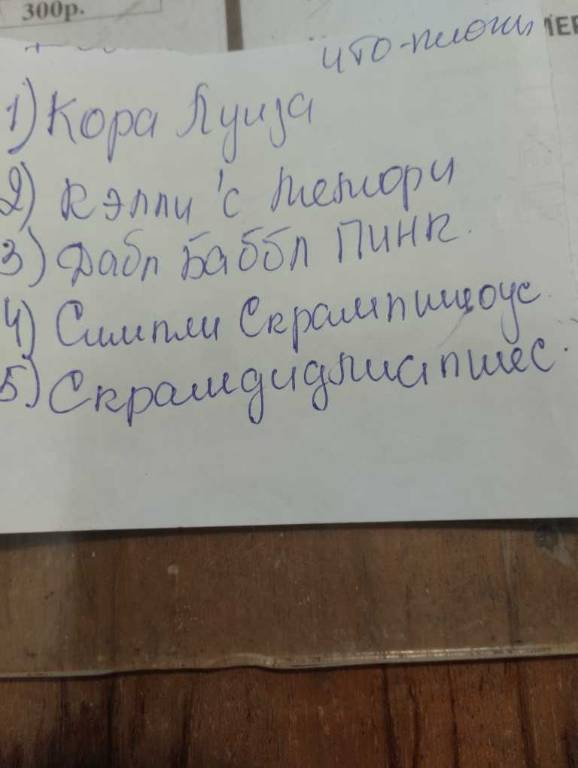 300р.
ито-пионы
1) Кора Луиза
2) Кэлли'с Мемори
3) Дабл Баббл Пинк.
4) Симпли Скрампшоус
5) Скрамдидлиампшес.